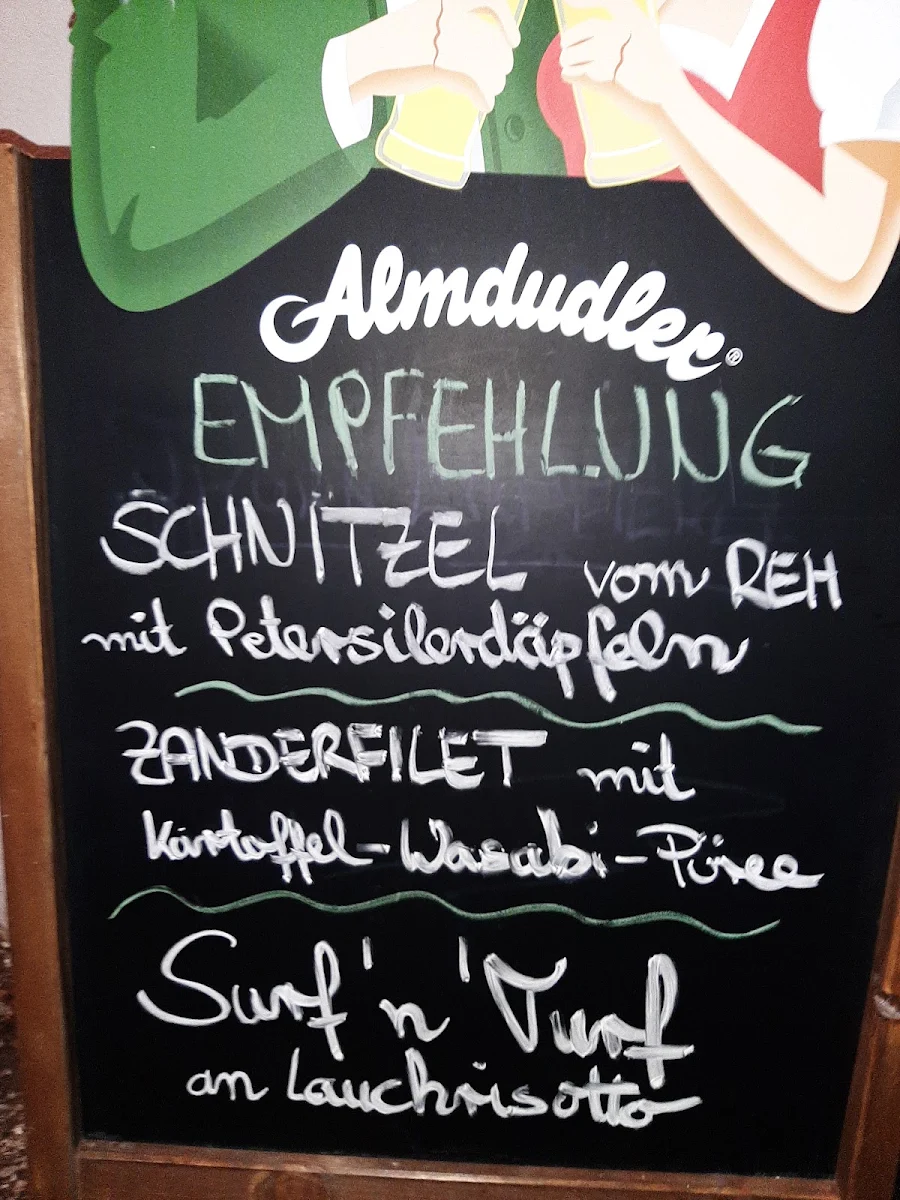 Almdudler®
EMPFEHLUNG
SCHNITZEL vom REH
mit Petersilerdäpfeln
ZANDERFILET mit
Kartoffel-Wasabi-Püree
Surf 'n' Turf
an Lauchrisotto